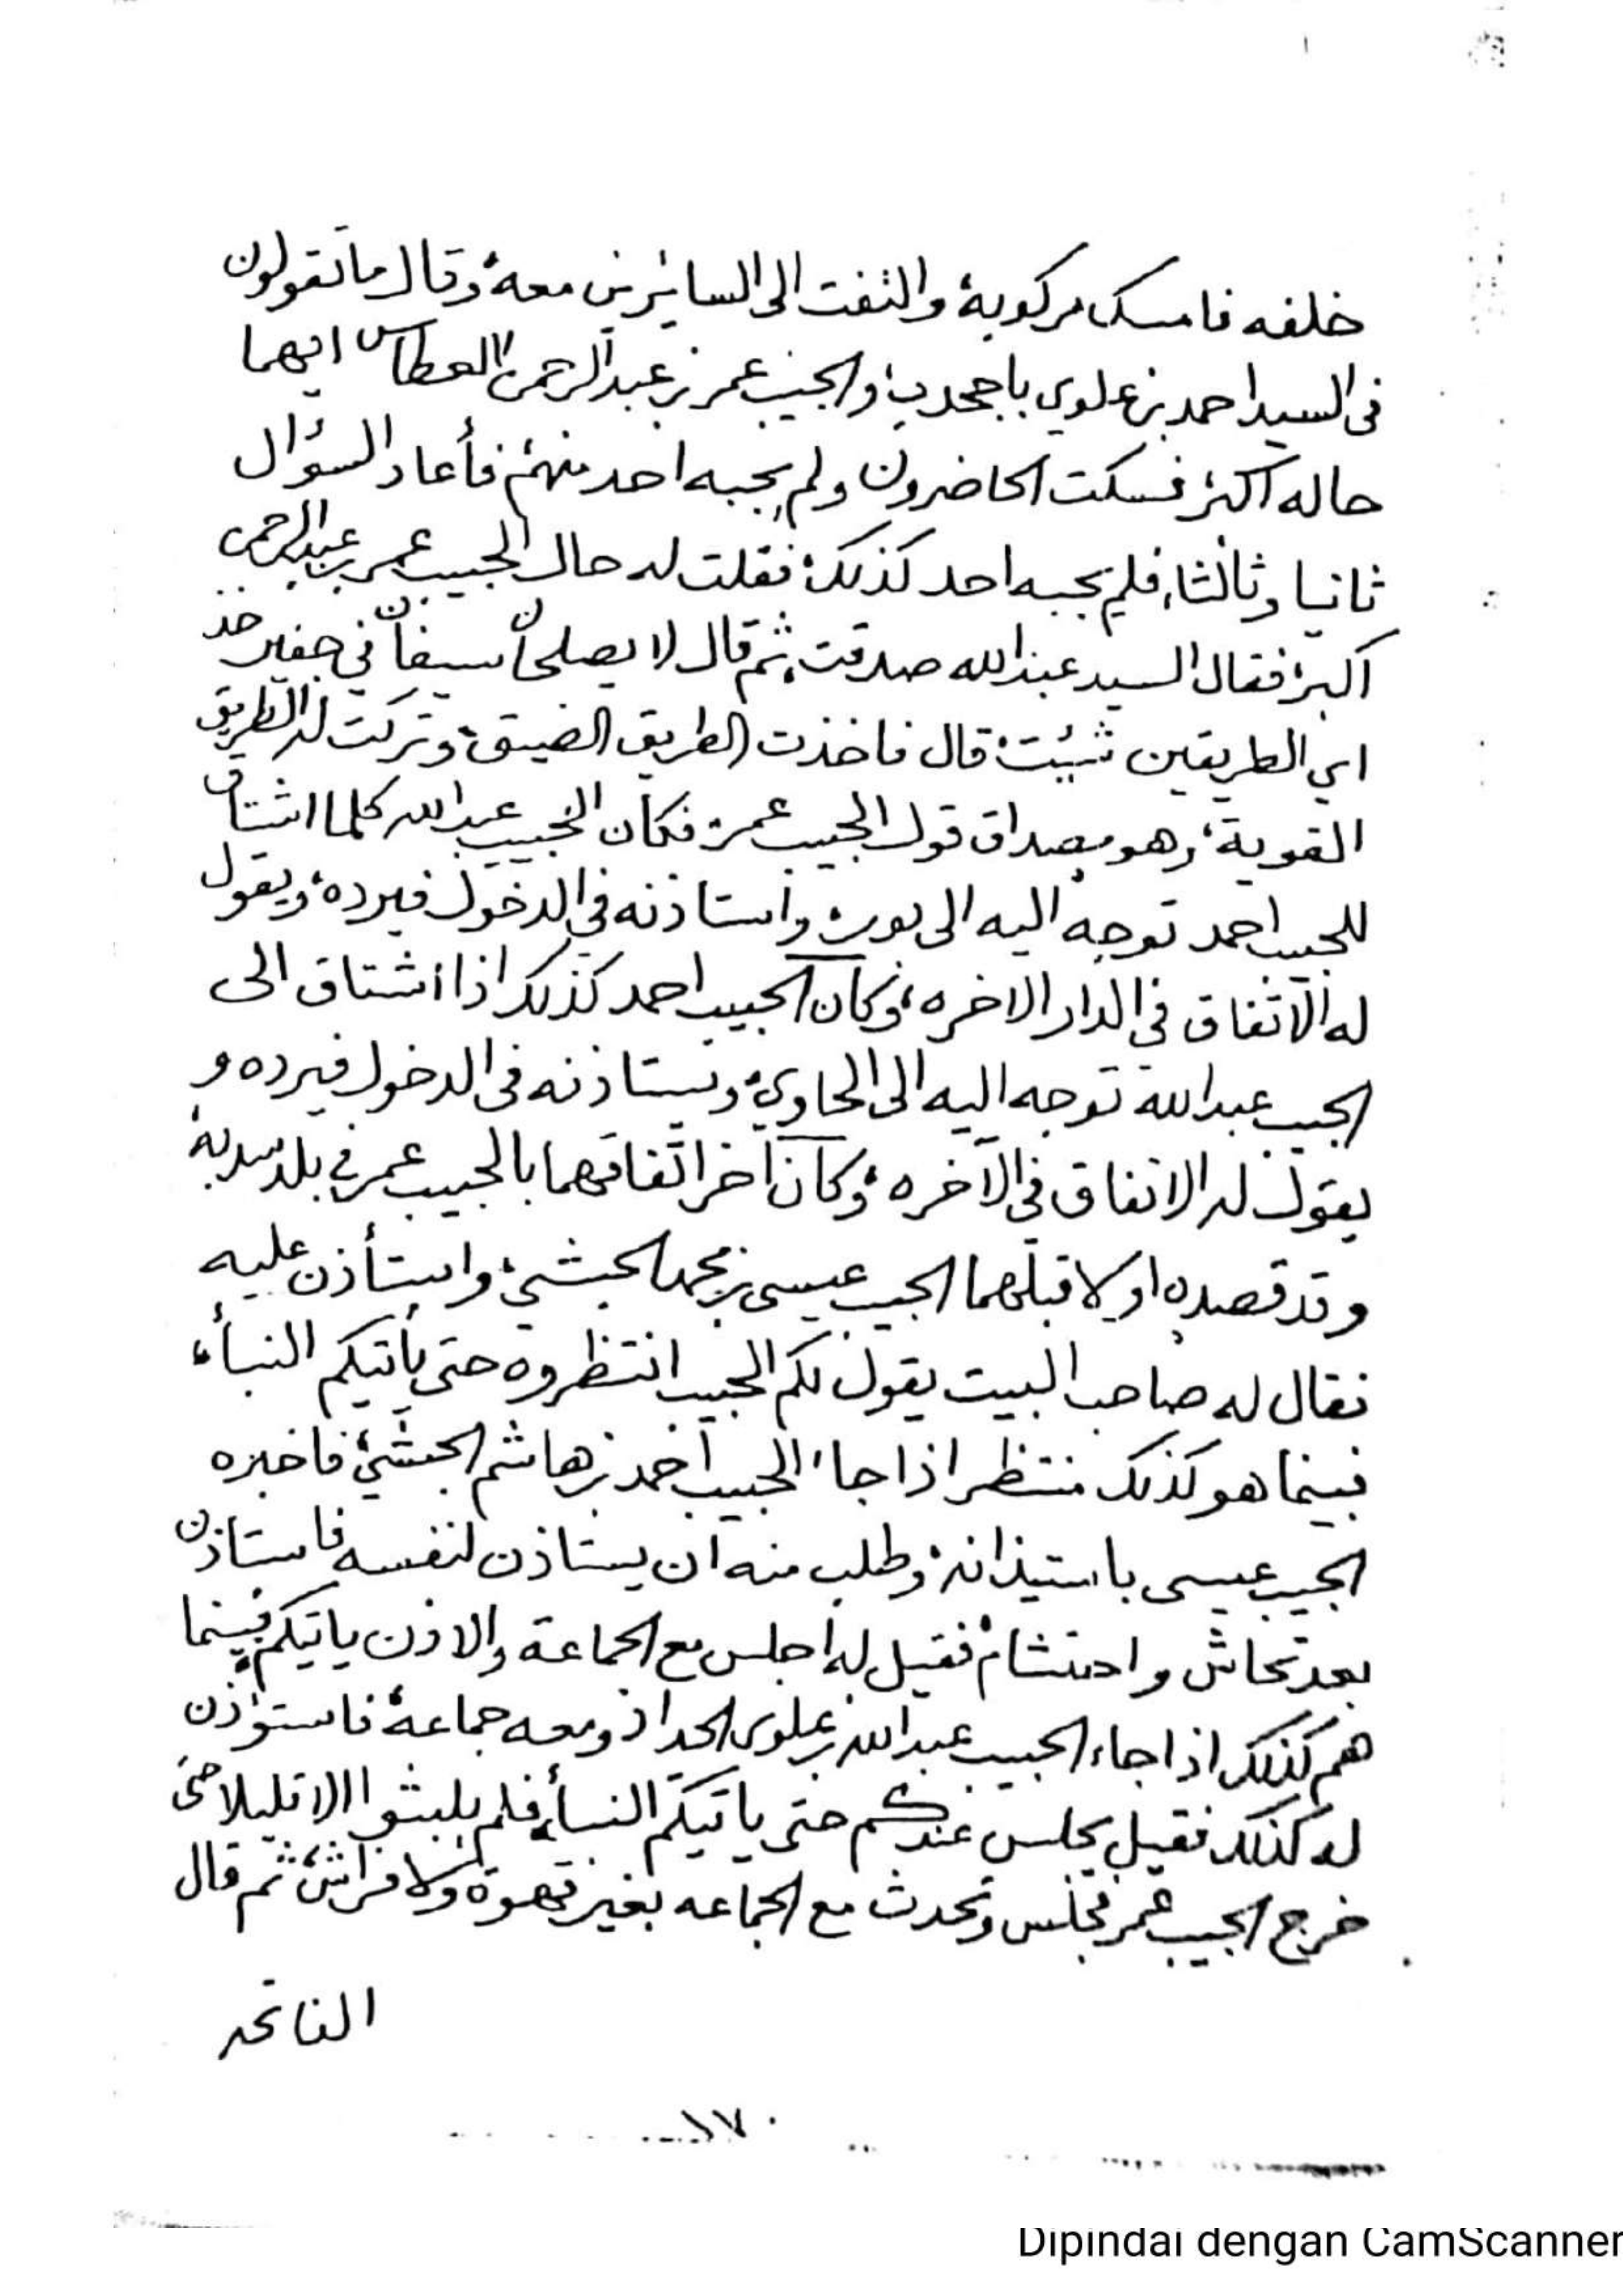 خلفه فامسك مركوبه والتفت الى السائرين معه وقال ما تقولون
فى السيد احمد بن علوي باجحدب والحبيب عمر بن عبدالرحمن العطاس ايهما
حاله اكبر فسكت الحاضرون ولم يجبه احد منهم فأعاد السؤال
ثانيا وثالثا، فلم يجبه احد كذلك، فقلت له حال الحبيب عمر بن عبدالرحمن
اكبر، فقال السيد عبدالله صدقت، ثم قال لا يصلحان سيفان في جفير خذ
اي الطريقين شئت، قال فاخذت الطريق الضيق، وتركت له الطريق
القوية، وهو مصداق قول الحبيب عمر، فكان الحبيب عبدالله كلما اشتاق
للحبيب احمد توجه اليه الى بور، واستاذنه في الدخول فيرده، ويقول
له الاتفاق في الدار الاخره، وكان الحبيب احمد كذلك اذا اشتاق الى
الحبيب عبدالله توجه اليه الى الحاوي، ويستاذنه فى الدخول فيرده و
يقول له الاتفاق في الآخره، وكان آخر اتفاقهما بالحبيب عمر في بلد سدبه
وقد قصده اولا قبلهما الحبيب عيسى بن محمد الحبشي، واستأذن عليه
فقال له صاحب البيت يقول لكم الحبيب انتظروه حتى يأتيكم النبأ،
فبينما هو كذلك منتظر اذا جاء الحبيب احمد بن هاشم الحبشي، فاخبره
الحبيب عيسى باستيذانه، وطلب منه ان يستاذن لنفسه فاستاذن
بعد تحاش واحتشام، فقيل له اجلس مع الجماعة والاذن ياتيكم، فبينما
هم كذلك اذا جاء الحبيب عبدالله بن علوي الحداد ومعه جماعة، فاستؤذن
له كذلك فقيل يجلس عندكم حتى ياتيكم النبأ، فلم يلبثوا الا قليلا حتى
خرج الحبيب عمر فجلس وتحدث مع الجماعه بغير قهوة ولا فراش، ثم قال
الفاتحه
١٧٠
Dipindai dengan CamScanner